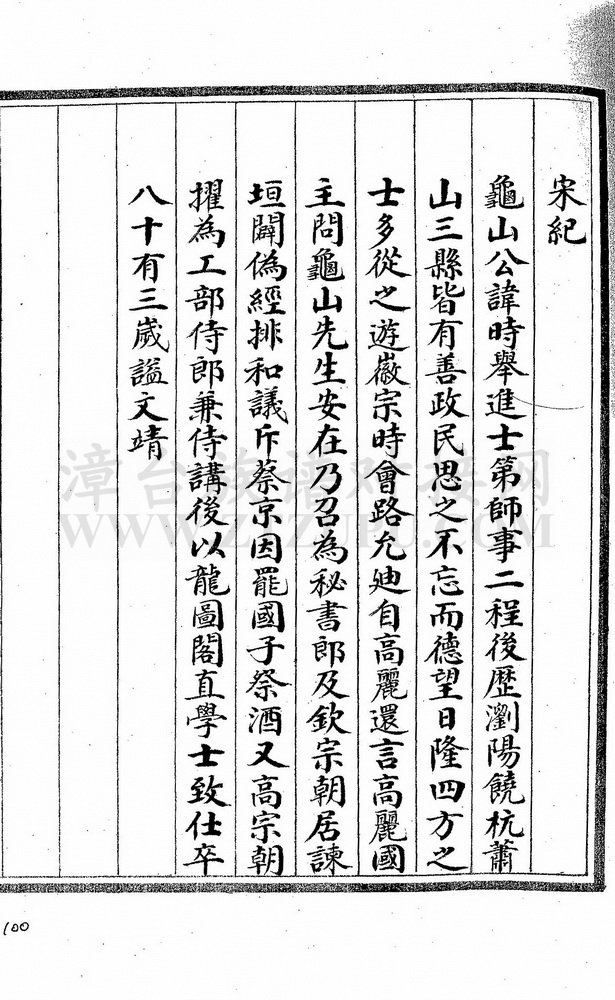 宋紀
龜山公諱時舉進士第師事二程後歷瀏陽饒杭蕭
山三縣皆有善政民思之不忘而德望日隆四方之
士多從之遊徽宗時會路允廸自高麗還言高麗國
主問龜山先生安在乃召為秘書郎及欽宗朝居諫
垣闢偽經排和議斥蔡京因罷國子祭酒又高宗朝
擢為工部侍郎兼侍講後以龍圖閣直學士致仕卒
八十有三歲諡文靖
漳台族谱对接网
WWW.ZTZUPU.COM
100